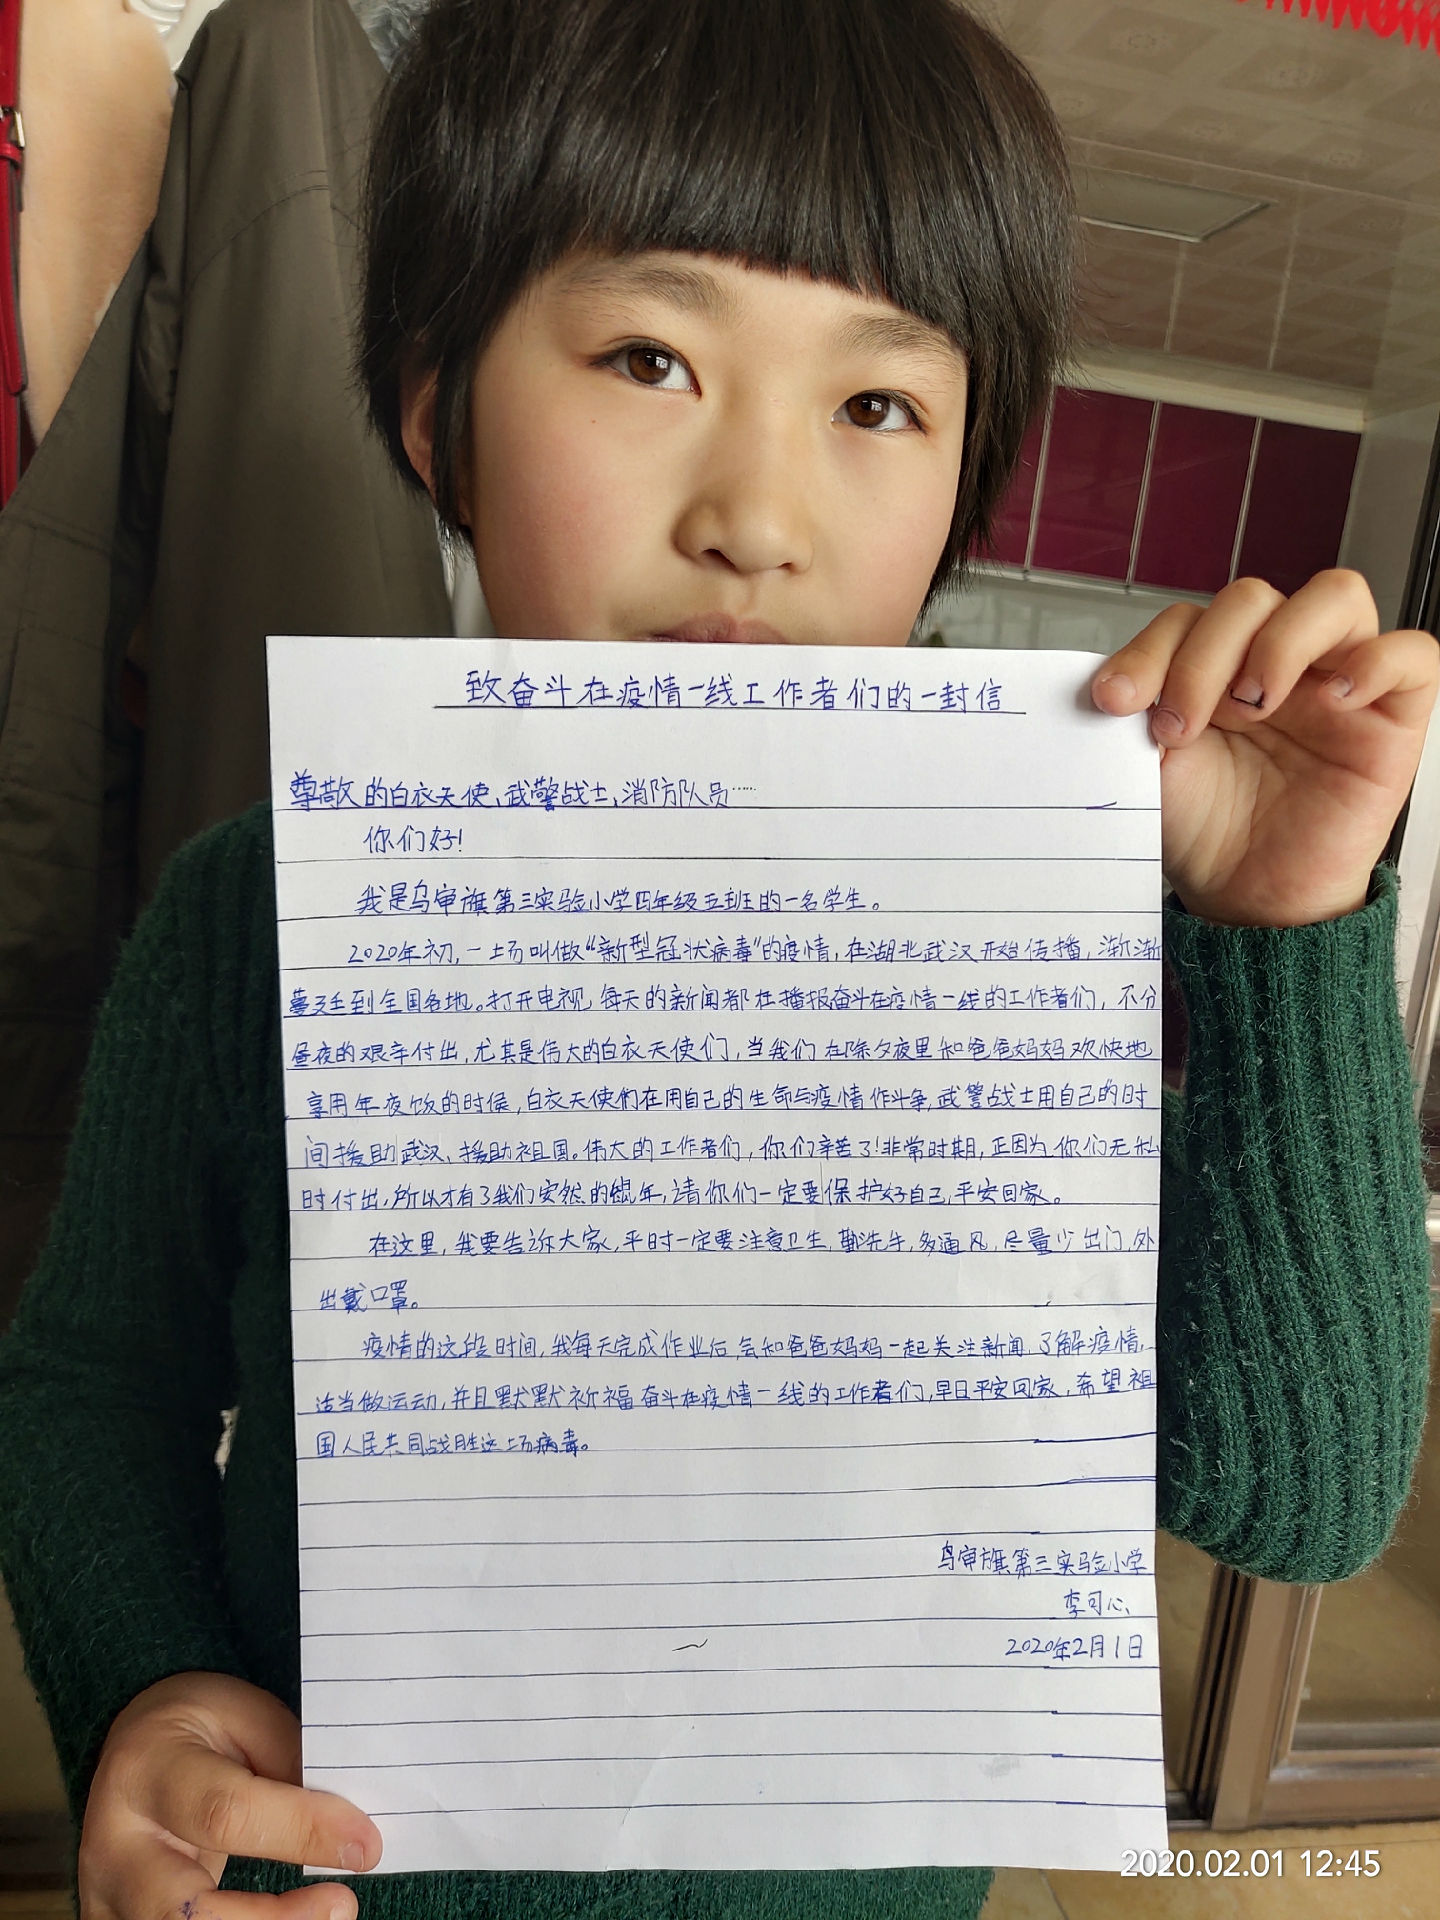 致奋斗在疫情一线工作者们的一封信
尊敬的白衣天使、武警战士、消防队员……
你们好!
我是乌审旗第三实验小学四年级五班的一名学生。
2020年初,一场叫做“新型冠状病毒”的疫情,在湖北武汉开始传播,渐渐
蔓延到全国各地。打开电视,每天的新闻都在播报奋斗在疫情一线的工作者们,不分
昼夜的艰辛付出,尤其是伟大的白衣天使们,当我们在除夕夜里和爸爸妈妈欢快地
享用年夜饭的时候,白衣天使们在用自己的生命与疫情作斗争,武警战士用自己的时
间援助武汉、援助祖国。伟大的工作者们,你们辛苦了!非常时期,正因为你们无私
时付出,所以才有了我们安然的鼠年,请你们一定要保护好自己,平安回家。
在这里,我要告诉大家,平时一定要注意卫生,勤洗手,多通风,尽量少出门,外
出戴口罩。
疫情的这段时间,我每天完成作业后,会和爸爸妈妈一起关注新闻,了解疫情,
适当做运动,并且默默祈福奋斗在疫情一线的工作者们,早日平安回家,希望祖
国人民共同战胜这场病毒。
乌审旗第三实验小学
李可心
2020年2月1日
2020.02.01 12:45